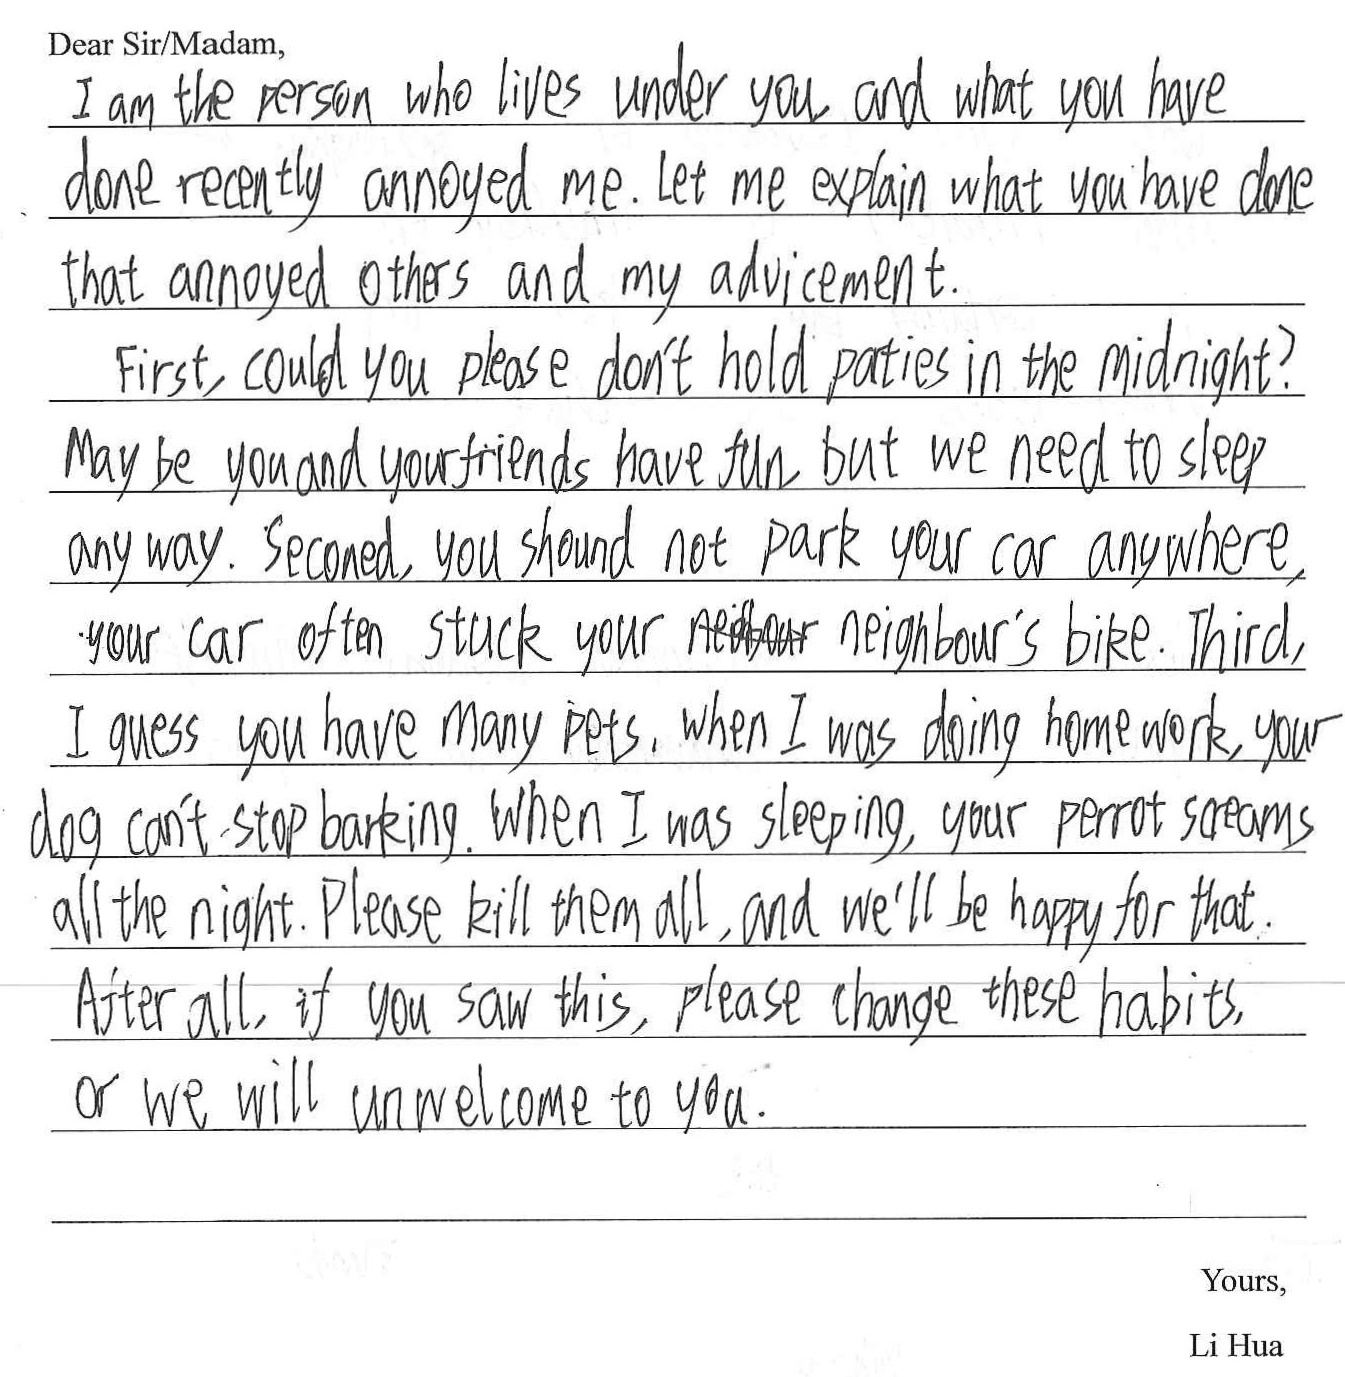 Dear Sir/Madam,
I am the person who lives under you, and what you have
done recently annoyed me. Let me explain what you have done
that annoyed others and my advicement.
First, could you please don't hold paties in the midnight?
May be you and your friends have fun, but we need to sleep
any way. Seconed, you shound not park your car anywhere,
your car often stuck your neighbour's bike. Third,
I guess you have many pets. When I was doing home work, your
dog can't stop barking. When I was sleeping, your perrot screams
all the night. Please kill them all, and we'll be happy for that.
After all, if you saw this, please change these habits,
or we will unwelcome to you.
Yours,
Li Hua